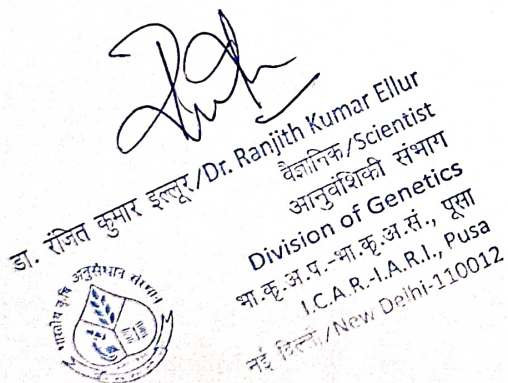 डा. रंजित कुमार इल्लूर/Dr. Ranjith Kumar Ellur
वैज्ञानिक/Scientist
आनुवंशिकी संभाग
Division of Genetics
भा.कृ.अ.प.-भा.कृ.अ.सं., पूसा
I.C.A.R.-I.A.R.I., Pusa
नई दिल्ली/New Delhi-110012
भारतीय कृषि अनुसंधान संस्थान